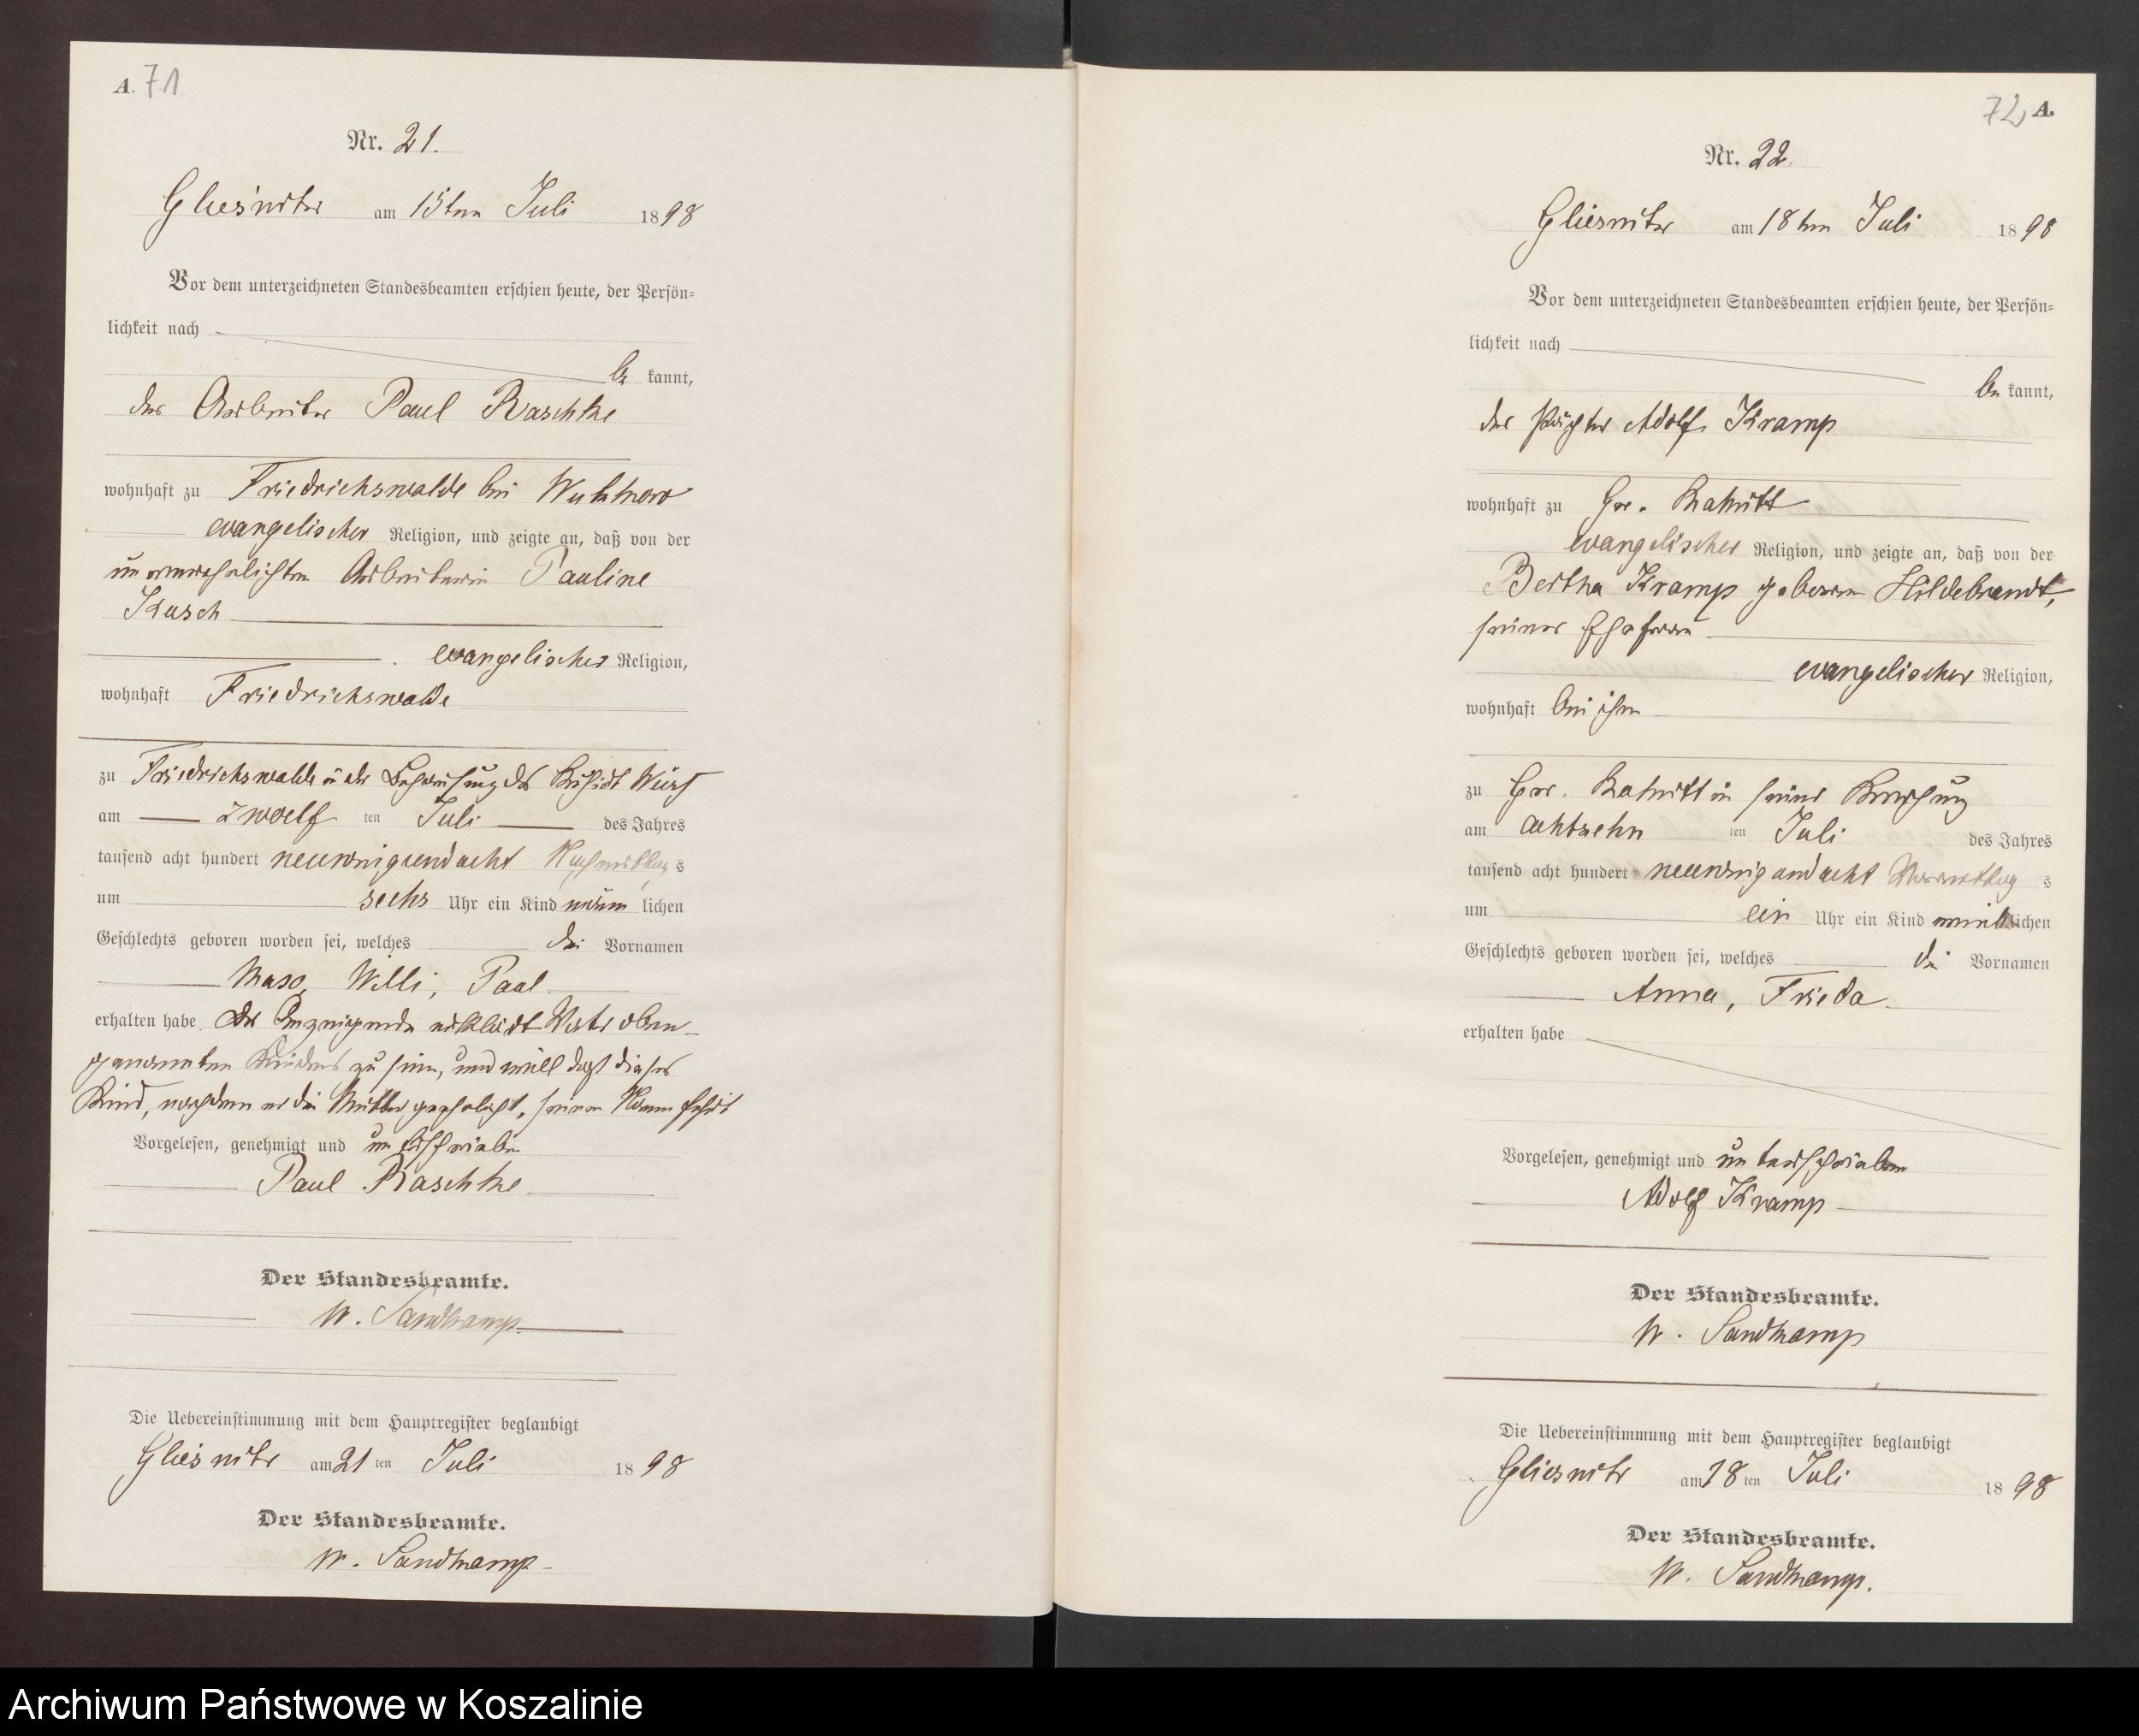 A. 71
Nr. 21.
Gliesnitz am 15ten Juli 1898
Vor dem unterzeichneten Standesbeamten erschien heute, der Persön=
lichkeit nach
be kannt,
der Arbeiter Paul Raschke
wohnhaft zu Friedrichswalde bei Wutzkow
evangelischer Religion, und zeigte an, daß von der
unverehelichten Arbeiterin Pauline
Kusch
evangelischer Religion,
wohnhaft Friedrichswalde
zu Friedrichswalde in der Behausung des
am zwoelf ten Juli des Jahres
tausend acht hundert neunzig und acht Nachmittag s
um sechs Uhr ein Kind männ lichen
Geschlechts geboren worden sei, welches die Vornamen
Max, Willi, Paul
erhalten habe. Der Anzeigende erklärt Vater oben
genannten Kindes zu sein, und will daß dieses
Kind, nachdem er die Mutter geehelicht, seinen Namen führt
Vorgelesen, genehmigt und unterschrieben
Paul Raschke
Der Standesbeamte.
W. Sandkamp
Die Uebereinstimmung mit dem Hauptregister beglaubigt
Gliesnitz am 21 ten Juli 1898
Der Standesbeamte.
W. Sandkamp
72 A.
Nr. 22.
Gliesnitz am 18ten Juli 1898
Vor dem unterzeichneten Standesbeamten erschien heute, der Persön=
lichkeit nach
be kannt,
der Pächter Adolf Kramp
wohnhaft zu Gr. Rakitt
evangelischer Religion, und zeigte an, daß von der
Bertha Kramp geboren Hildebrandt,
seiner Ehefrau
evangelischer Religion,
wohnhaft bei ihm
zu Gr. Rakitt in seiner
am achtzehn ten Juli des Jahres
tausend acht hundert neunzig und acht Vormittag s
um ein Uhr ein Kind weiblichen
Geschlechts geboren worden sei, welches die Vornamen
Anna, Frieda
erhalten habe
Vorgelesen, genehmigt und unterschrieben
Adolf Kramp
Der Standesbeamte.
W. Sandkamp
Die Uebereinstimmung mit dem Hauptregister beglaubigt
Gliesnitz am 18 ten Juli 1898
Der Standesbeamte.
W. Sandkamp.
Archiwum Państwowe w Koszalinie